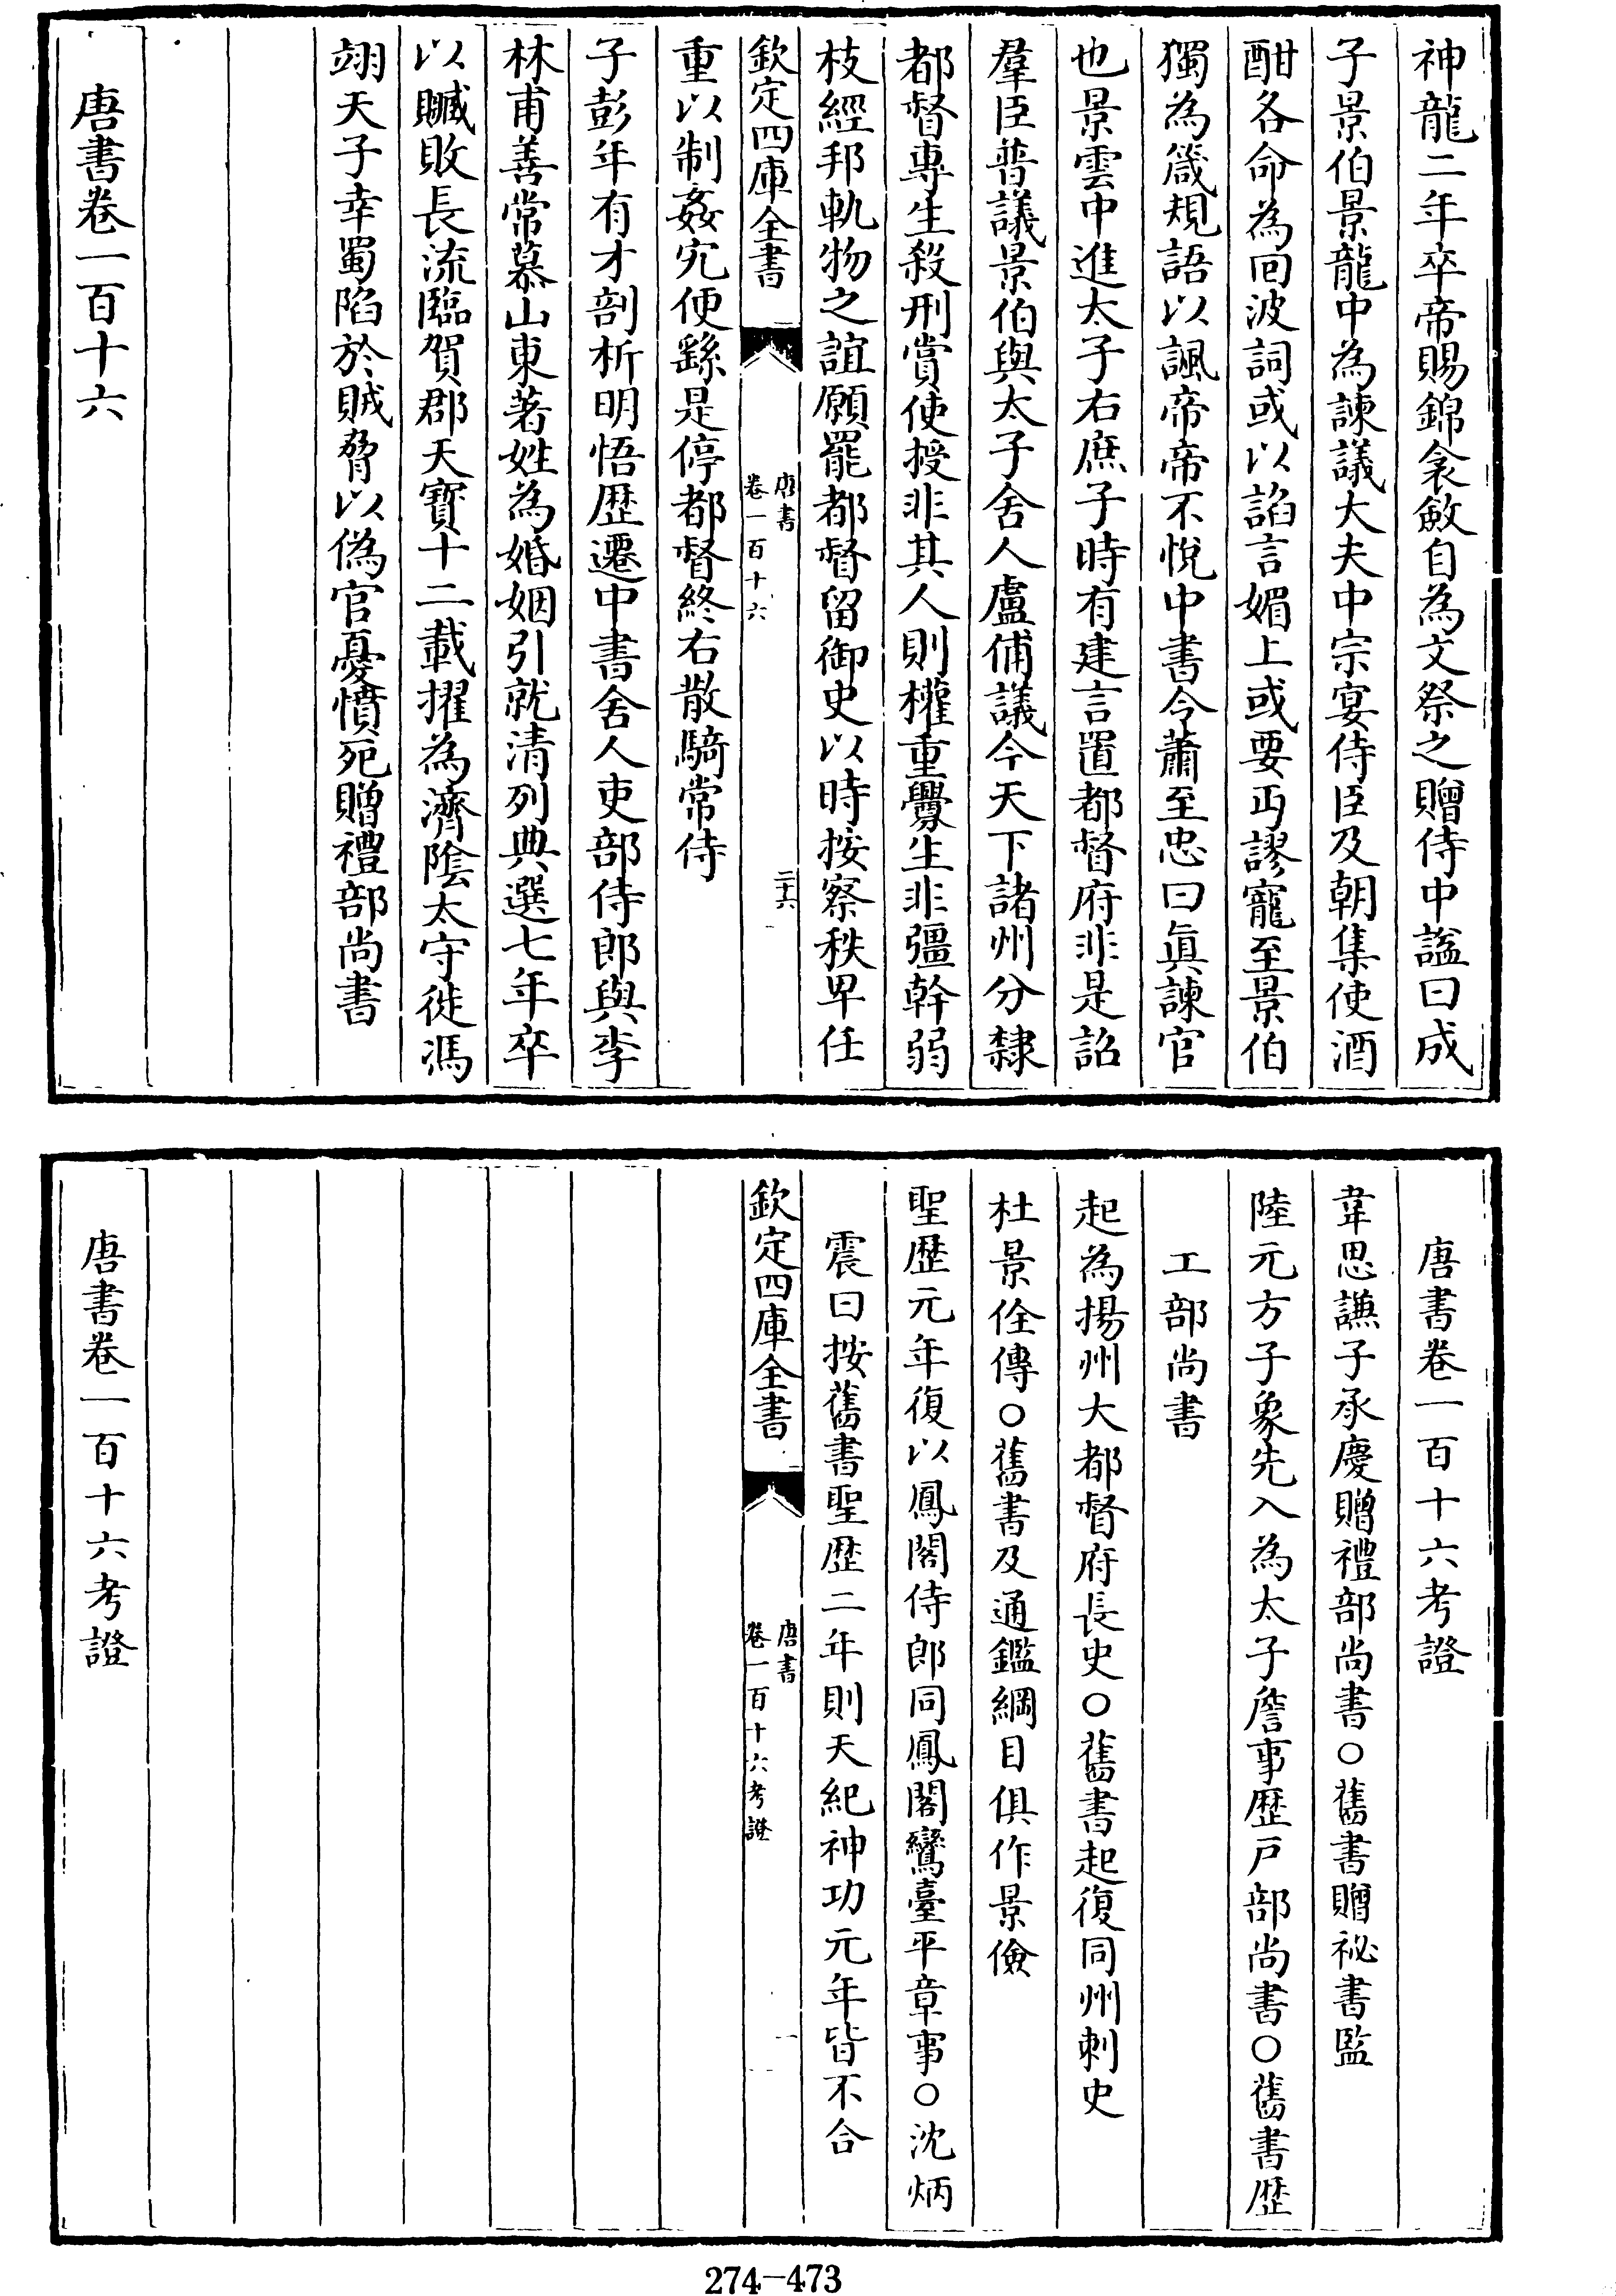 神龍二年卒帝賜錦衾斂自為文祭之贈侍中諡曰成
子景伯景龍中為諫議大夫中宗宴侍臣及朝集使酒
酣各命為回波詞或以諂言媚上或要丐謬寵至景伯
獨為箴規語以諷帝帝不悅中書令蕭至忠曰真諫官
也景雲中進太子右庶子時有建言置都督府非是詔
羣臣普議景伯與太子舍人盧俌議今天下諸州分隸
都督專生殺刑賞使授非其人則權重釁生非彊幹弱
枝經邦軌物之誼願罷都督留御史以時按察秩卑任
欽定四庫全書
唐書
卷一百十六
二十六
重以制姦宄便繇是停都督終右散騎常侍
子彭年有才剖析明悟歴遷中書舍人吏部侍郎與李
林甫善常慕山東著姓為婚姻引就清列典選七年卒
以贓敗長流臨賀郡天寶十二載擢為濟陰太守徙馮
翊天子幸蜀陷於賊脅以偽官憂憤死贈禮部尚書
唐書卷一百十六
唐書卷一百十六考證
韋思謙子承慶贈禮部尚書○舊書贈祕書監
陸元方子象先入為太子詹事歴戶部尚書○舊書歴
工部尚書
起為揚州大都督府長史○舊書起復同州刺史
杜景佺傳○舊書及通鑑綱目俱作景儉
聖歴元年復以鳳閣侍郎同鳳閣鸞臺平章事○沈炳
震曰按舊書聖歴二年則天紀神功元年皆不合
欽定四庫全書
唐書
卷一百十六考證
一
唐書卷一百十六考證
274-473